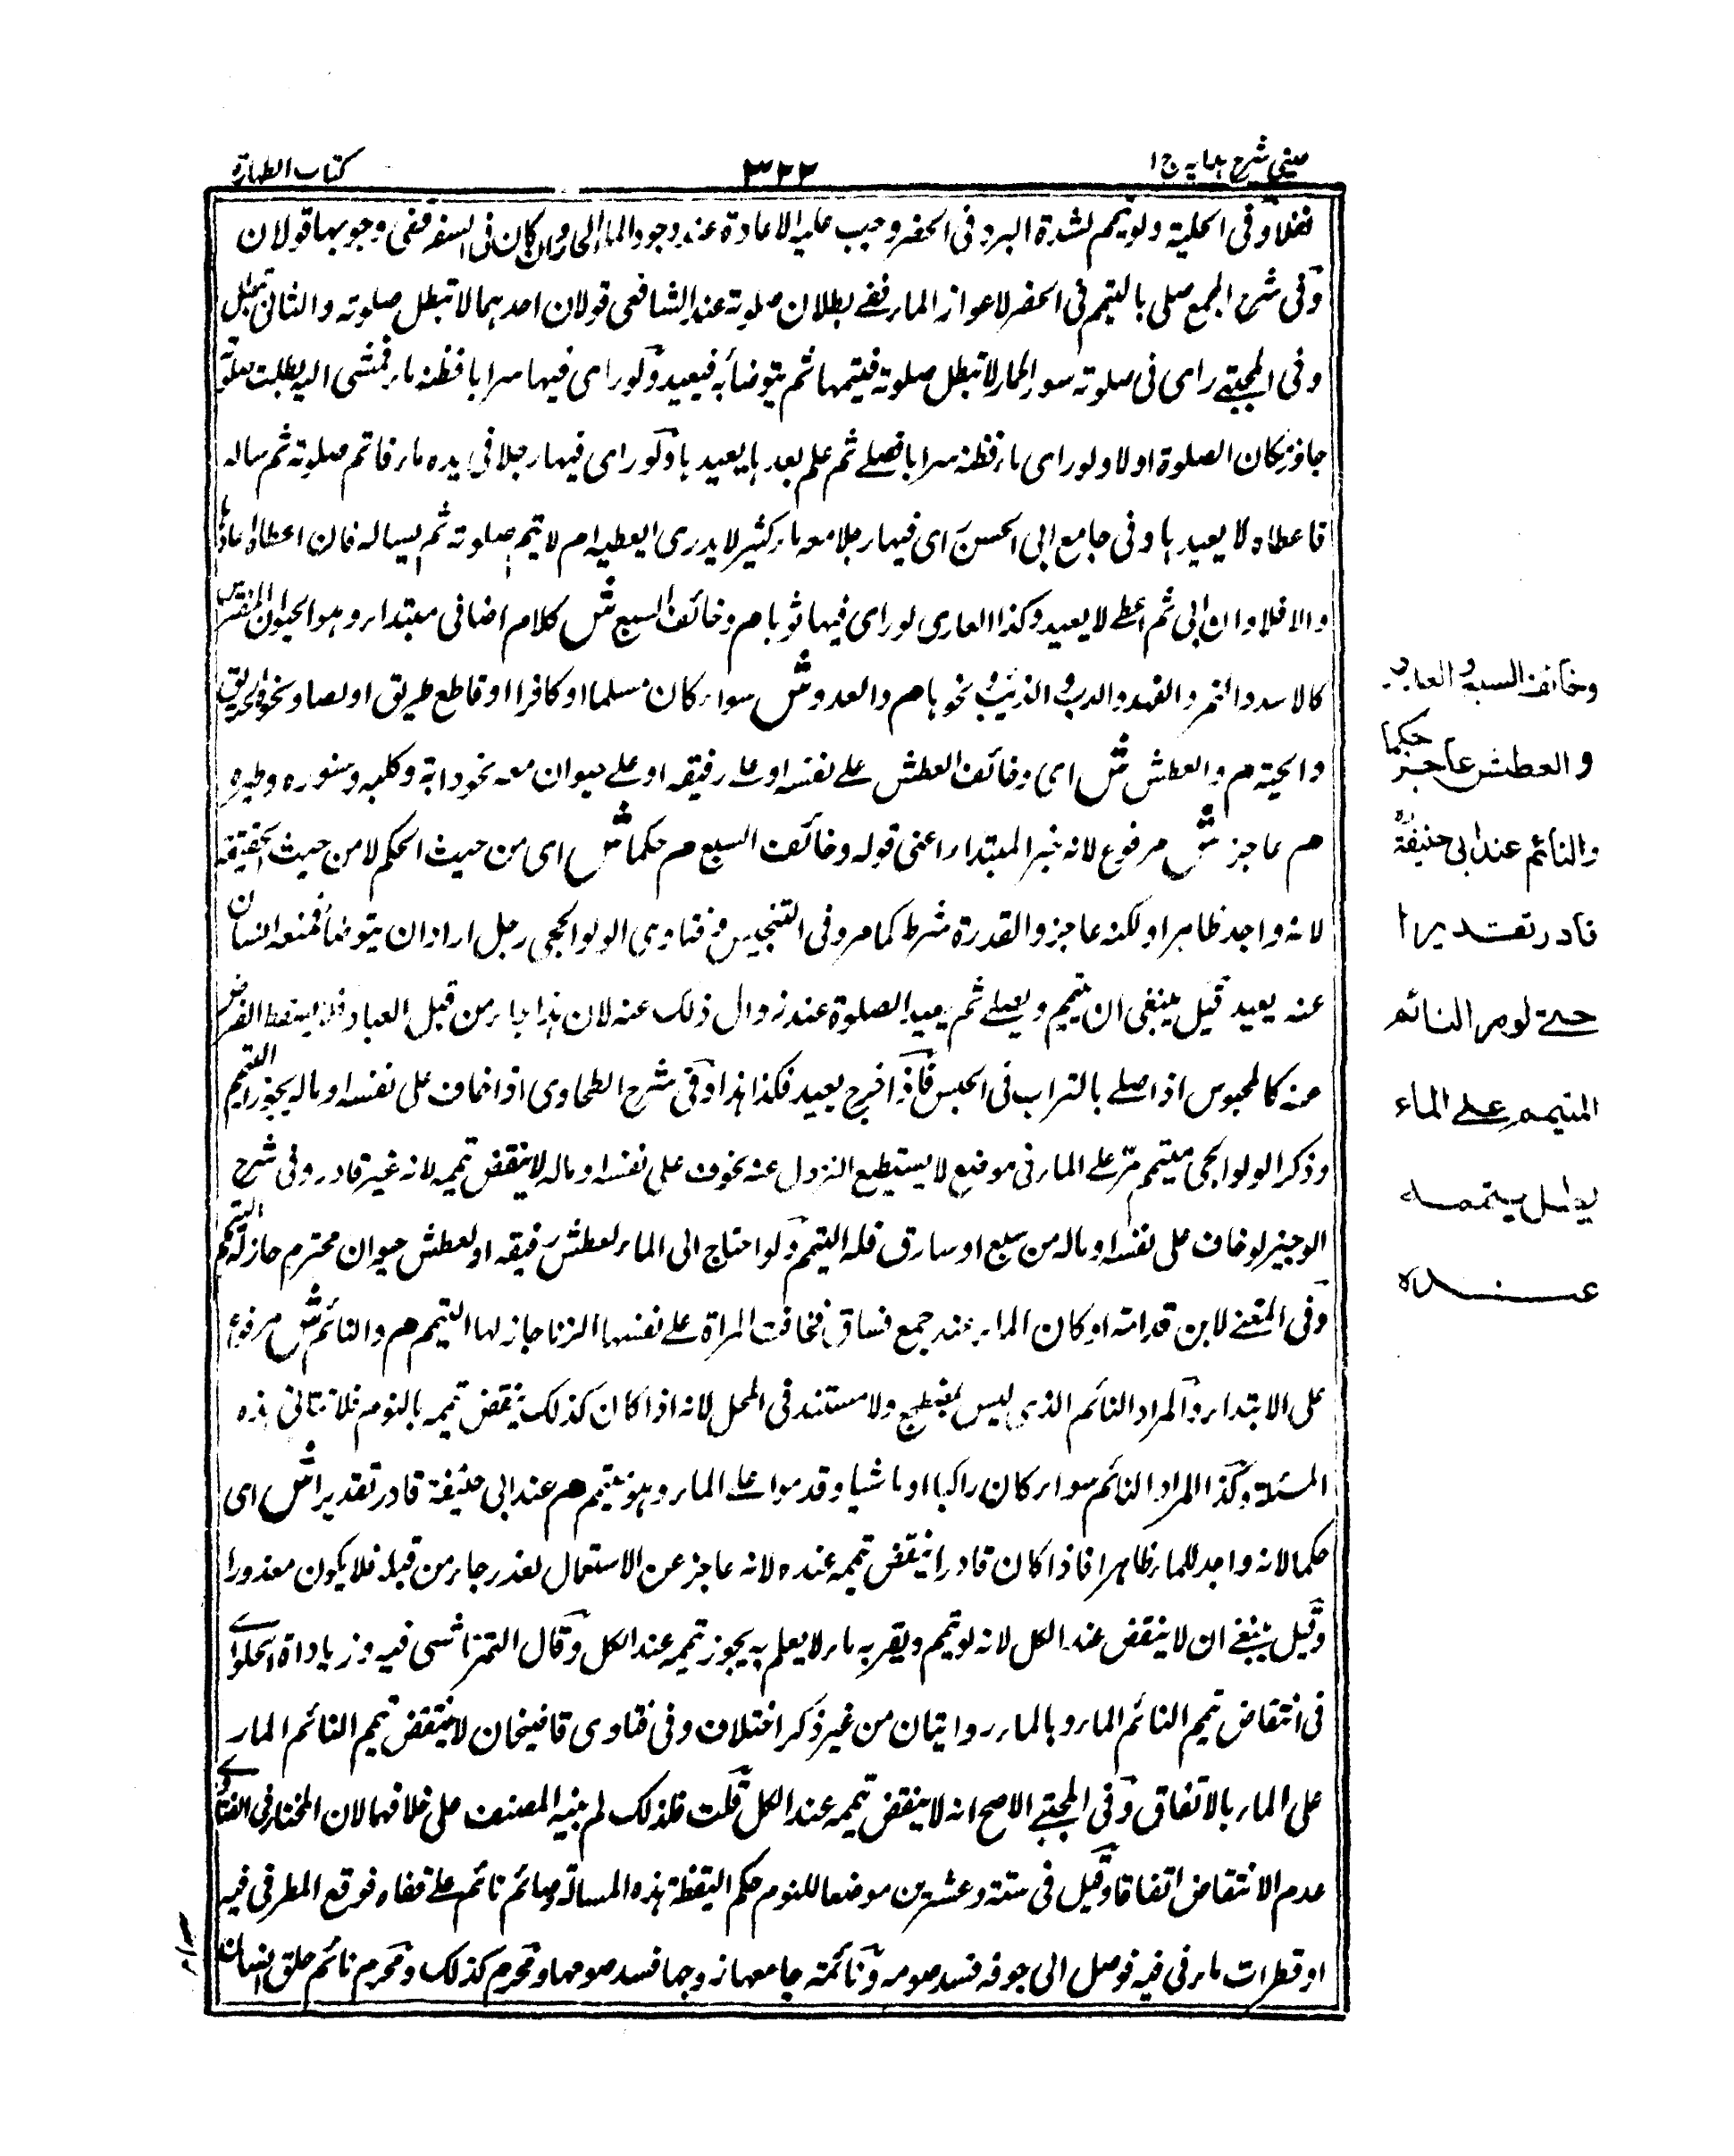 عيني شرح هدايه ج ١
٣٢٢
كتاب الطهارة
نفلا وفى الحلية ولو تيمم لشدة البرد فى الحضر وجب عليه الاعادة عند وجود الماء الحار وان كان فى السفر ففى وجوبها قولان
وفى شرح المجمع صلى بالتيمم فى الحضر لاعواز الماء ففى بطلان صلوته عند الشافعى قولان احدهما لا تبطل صلوته والثانى تبطل
وفى المجتبے راى فى صلوته سور الحمار لا تبطل صلوته فيتمها ثم يتوضأ به فيعيد ولو راى فيها سرابا فظنه ماء فمشى اليه بطلت صلوته
جاوز مكان الصلوة اولا ولو راى ماء فظنه سرابا فصلے ثم علم بعدها يعيدها ولو راى فيها رجلا فى يده ماء فاتم صلوته ثم ساله
فاعطاه لا يعيدها وفى جامع ابى الحسن راى فيها رجلا معه ماء كثير لا يدرى ايعطيه ام لا يتم صلوته ثم يساله فان اعطاه اعادها
والا فلا وان ابى ثم اعطے لا يعيد وكذا العارى لو راى فيها ثوبا م وخائف السبع ش كلام اضافى مبتداء وهو الحيوان المفترس
كالاسد والنمر والفهد والدب والذئب ونحوها م والعدو ش سواء كان مسلما او كافرا او قاطع طريق او لصا ونحو الحريق
والحية م والعطش ش اى وخائف العطش علے نفسه او علے رفيقه او علے حيوان معه نحو دابته وكلبه وسنوره وطيره
م عاجز ش مرفوع لانه خبر المبتداء اعنى قوله وخائف السبع م حكما ش اى من حيث الحكم لا من حيث الحقيقة
لانه واجد ظاهرا ولكنه عاجز والقدرة شرط كما مر وفى التنجيس وفتاوى الولوالجى رجل اراد ان يتوضأ فمنعه انسان
عنه يعيد قيل ينبغى ان يتيمم ويصلے ثم يعيد الصلوة عند زوال ذلك عنه لان هذا جاء من قبل العباد فلا يسقط الفرض
منه كالمحبوس اذا صلے بالتراب فى الحبس فاذا خرج يعيد فكذا هذا وفى شرح الطحاوى اذا خاف على نفسه او ماله يجوز له التيمم
وذكر الولوالجى متيمم مر علے الماء فى موضع لا يستطيع النزول عنه لخوف على نفسه او ماله لا ينقض تيممه لانه غير قادر وفى شرح
الوجيز لو خاف على نفسه او ماله من سبع او سارق فله التيمم ولو احتاج الى الماء لعطش رفيقه او لعطش حيوان محترم جاز له التيمم
وفى المغنے لابن قدامة او كان الماء عند جمع فساق فخافت المراة علے نفسها الزنا جاز لها التيمم م والنائم ش مرفوع
على الابتداء والمراد النائم الذى ليس بمضطجع ولا مستند فى المحل لانه اذا كان كذلك ينقض تيممه بالنوم فلا تتاتى هذه
المسئلة وكذا المراد النائم سواء كان راكبا او ماشيا وقد مروا علے الماء وهو متيمم م عند ابى حنيفة قادر تقديرا ش اى
حكما لانه واجد للماء ظاهرا فاذا كان قادرا ينقض تيممه عنده لانه عاجز عن الاستعمال لعذر جاء من قبله فلا يكون معذورا
وقيل ينبغے ان لا ينقض عند الكل لانه لو تيمم وبقربه ماء لا يعلم به يجوز تيممه عند الكل وقال التمرتاشى فيه وزيادات الحلوانے
فى انتقاض تيمم النائم المار بالماء روايتان من غير ذكر اختلاف وفى فتاوى قاضيخان لا ينتقض تيمم النائم المار
على الماء بالاتفاق وفى المجتبے الاصح انه لا ينقض تيممه عند الكل قلت فلذلك لم ينبه المصنف على خلافهما لان المختار فى الفتاوے
عدم الانتقاض اتفاقا وقيل فى ستة وعشرين موضعا للنوم حكم اليقظة هذه المسالة وصائم نائم علے قفاه فوقع المطر فى فيه
او قطرات ماء فى فيه فوصل الى جوفه فسد صومه ونائمة جامعها زوجها فسد صومها ومحرم كذلك ومحرم نائم حلق انسان
وخائف السبع والعدو
والعطش عاجز حكما
والنائم عند ابى حنيفة رح
قادر تقديرا
حتے لو مر النائم
المتيمم علے الماء
بطل تيممه
عنده